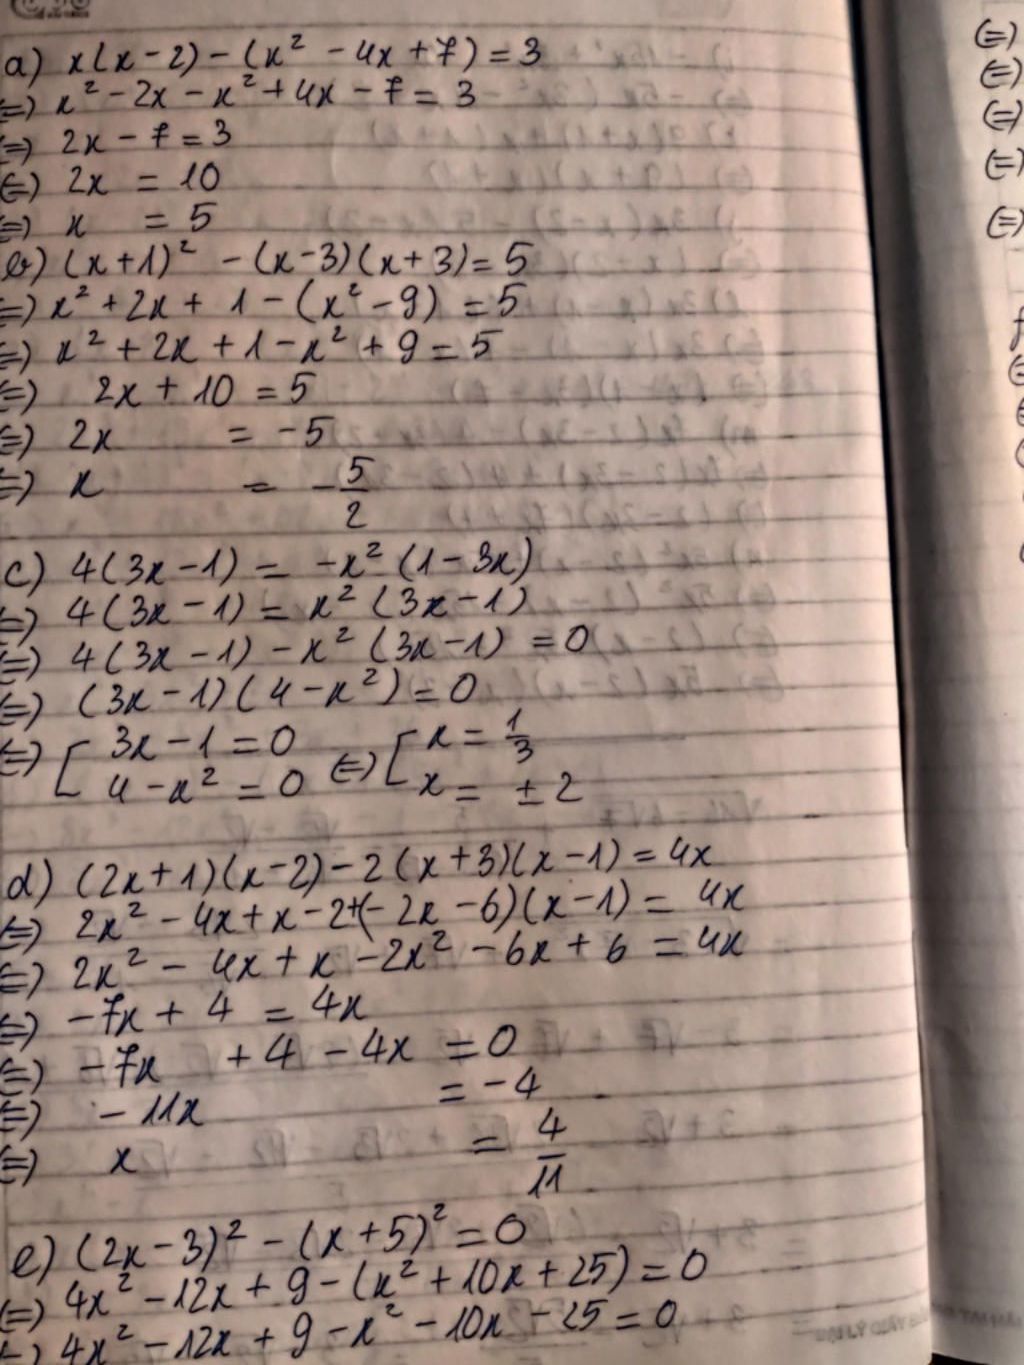 a) x(x-2) - (x² - 4x + 7) = 3
⇔) x² - 2x - x² + 4x - 7 = 3
⇔) 2x - 7 = 3
⇔) 2x = 10
⇔) x = 5
b) (x+1)² - (x-3)(x+3) = 5
⇔) x² + 2x + 1 - (x² - 9) = 5
⇔) x² + 2x + 1 - x² + 9 = 5
⇔) 2x + 10 = 5
⇔) 2x = -5
⇔) x = -5/2
c) 4(3x-1) = -x²(1-3x)
⇔) 4(3x-1) = x²(3x-1)
⇔) 4(3x-1) - x²(3x-1) = 0
⇔) (3x-1)(4-x²) = 0
⇔) [ 3x-1 = 0 ⇔) [ x = 1/3
4-x² = 0 x = ±2
d) (2x+1)(x-2) - 2(x+3)(x-1) = 4x
⇔) 2x² - 4x + x - 2 + (-2x-6)(x-1) = 4x
⇔) 2x² - 4x + x - 2x² - 6x + 6 = 4x
⇔) -7x + 4 = 4x
⇔) -7x + 4 - 4x = 0
⇔) -11x = -4
⇔) x = 4/11
e) (2x-3)² - (x+5)² = 0
⇔) 4x² - 12x + 9 - (x² + 10x + 25) = 0
⇔) 4x² - 12x + 9 - x² - 10x - 25 = 0